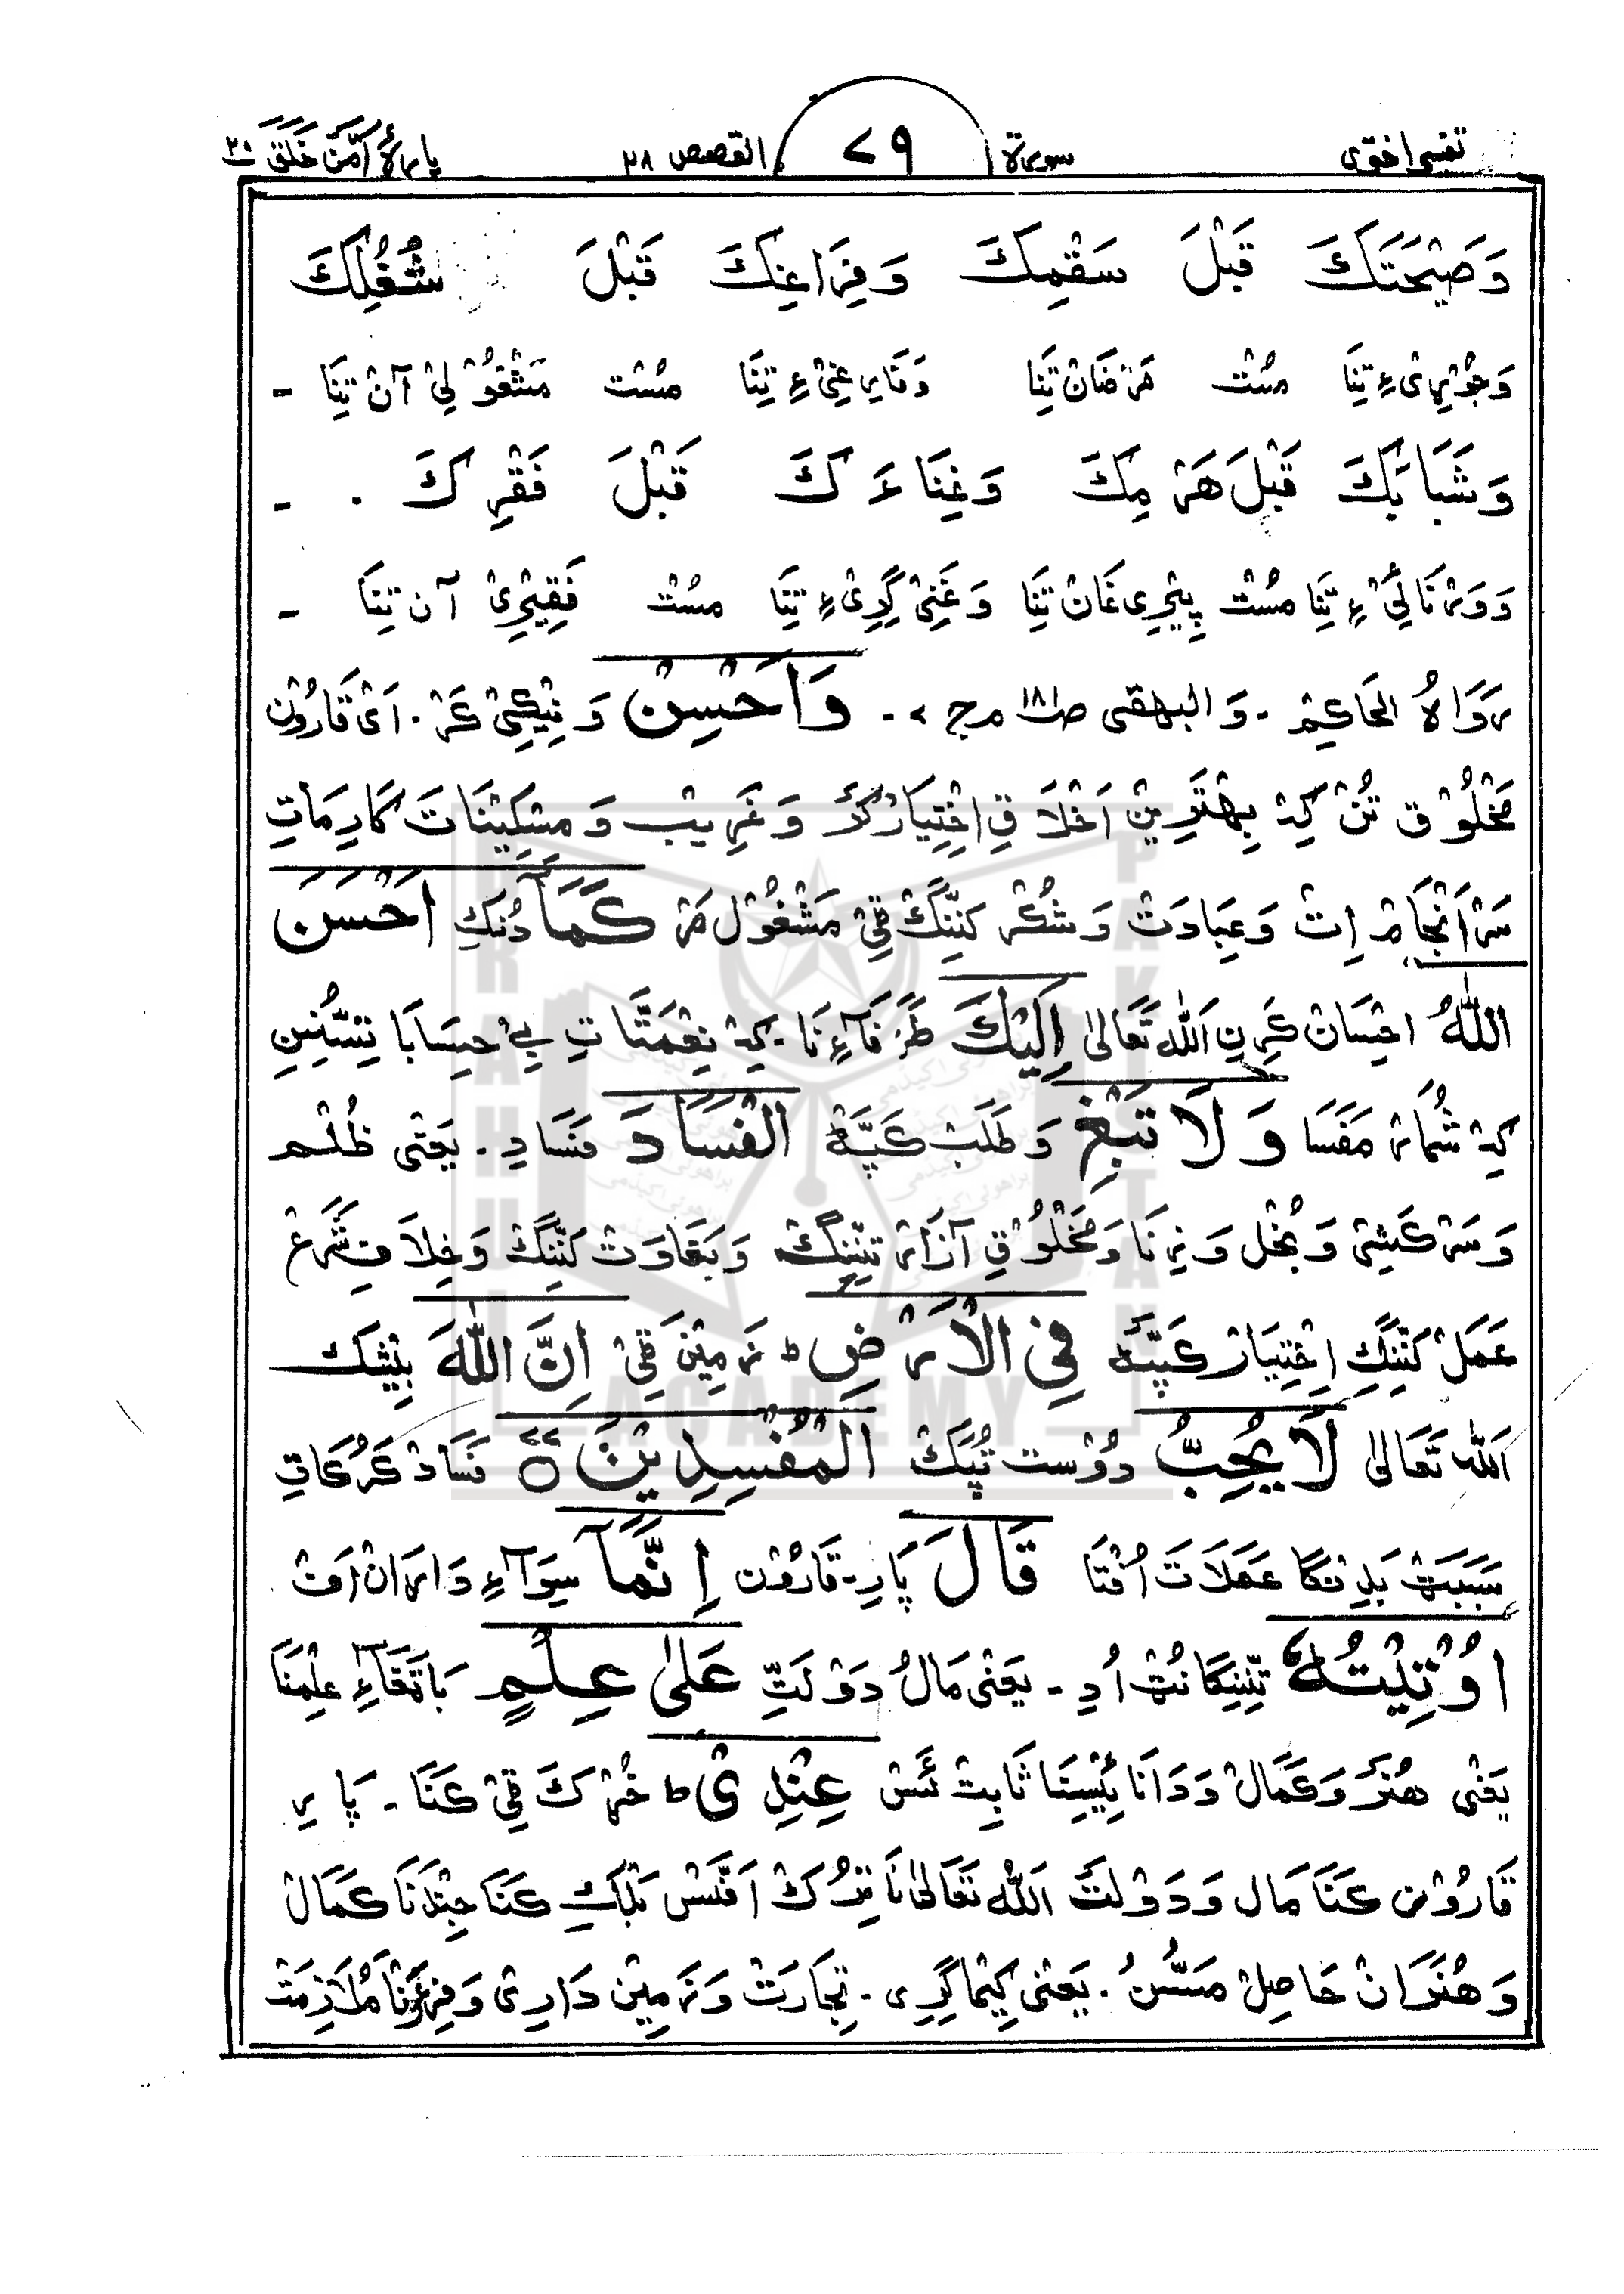 تفسیر اخوی سورة ٧٩ القصص ٢٨ پارہ اَمَّنْ خَلَقَ ٢٠
وَصِحَّتَكَ قَبْلَ سَقَمِكَ وَفِرَاغِكَ قَبْلَ شُغُلِكَ
وَجُوْړِىْ ءِ تِنَا مُسْت مَرَضَانْ تِنَا وَفَارِغِىْ ءِ تِنَا مُسْت مَشْغُوْلِىْ آنْ تِنَا -
وَشَبَابَكَ قَبْلَ هَرَمِكَ وَغِنَاءَكَ قَبْلَ فَقْرِكَ . -
وَوَرْنَائِىْ ءِ تِنَا مُسْت پِيْرِىْ غَانْ تِنَا وَغَنِىْ گَرِىْ ءِ تِنَا مُسْت فَقِيْرِىْ آن تِنَا -
رَوَاهُ الحَاكِمْ - وَالبهقى صـ١٨١ مـ ج ٧ - وَاَحْسِنْ وَ نِيْكِىْ كَرْ . اَىْ قَارُوْن
مَخْلُوْق تُنْ كِهْ بِهْتَرِيْن اَخْلَاقِ اِخْتِيَار كَرْ وَ غَرِيْب وَ مِسْكِيْنَاتَ كَارِمَاتِ
سَرْاَنْجَام اِتْ وَعِبَادَتْ وَ شُكْر كَنِنْگ ٹِىْ مَشْغُوْل مَرْ كَمَآ دُنكِ اَحْسَنَ
اللّٰهُ احْسَانْ كَرِنِ اَللّٰه تَعَالىٰ اِلَيْكَ طَرْفَآءِ نَا - كِهْ نِعْمَتَاتِ بِےْ حِسَابَا تِسُّنِنِ
كِهْ شُمَار مَفَسَا وَلَا تَبْغِ وَ طَلَبْ كَپَّهْ الْفَسَادَ فَسَادِ - يَعْنِى ظُلْم
وَسَرْكَشِىْ وَ بُخْل وَ زِنَا وَ مَخْلُوْقِ آزَار تِنِنْگ وَ بَغَاوَتْ كَنِنْگ وَ خِلَافِ شَرَعْ
عَمَلْ كَنِنْگِ اِخْتِيَار كَپَّهْ فِى الْاَرْضِ ط زَمِيْنَ ٹِىْ اِنَّ اللّٰهَ بِيْشَك
اَللّٰه تَعَالىٰ لَا يُحِبُّ دُوْسْت تُپَّكْ الْمُفْسِدِيْنَ ٥ ٧٧ فَسَادْ كَرُكَاتِ
سَبَبَتْ بَدِنْگَا عَمَلَاتَ اُفْتَا قَالَ پَارِ - قَارُوْن اِنَّمَآ سِوَآءِ دَارَانْ اَفْ
اُوْتِيْتُهٗ تِنِنْگَانُٹ اُدِ - يَعْنِى مَالُ دَوْلَتِ عَلىٰ عِلْمٍ بَاتَقَاءِ عِلْمَنَا
يَعْنِى هُنَرْ وَ كَمَالْ وَ دَانَائِيْسِتَا ثَابِتْ ئَسْ عِنْدِىْ ط خُرْكَ ٹِىْ كَنَا - پَارِ
قَارُوْن كَنَا مَال وَ دَوْلَتْ اَللّٰه تَعَالىٰ نَا تِرُكْ اَفَّسْ بَلْكِ كَنَا جِنْدَنَا كَمَالْ
وَ هُنَرَانْ حَاصِلْ مَسُّنْ . يَعْنِى كِيْمِاگَرِى - تِجَارَتْ وَ زَمِيْن دَارِىْ وَ فِرْعَوْنَا مُلَازِمَتْ